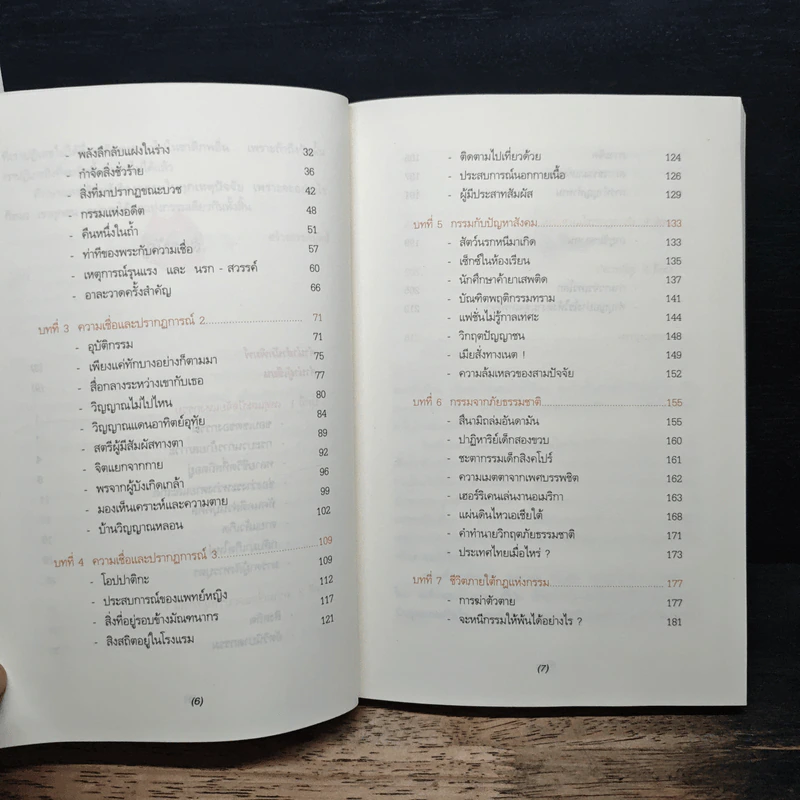 - พลังลึกลับแฝงในร่าง 32
- กำจัดสิ่งชั่วร้าย 36
- สิ่งที่มาปรากฏขณะบวช 42
- กรรมแห่งอดีต 48
- คืนหนึ่งในถ้ำ 51
- ท่าทีของพระกับความเชื่อ 57
- เหตุการณ์รุนแรง และ นรก - สวรรค์ 60
- อาละวาดครั้งสำคัญ 66
บทที่ 3 ความเชื่อและปรากฏการณ์ 2 71
- อุบัติกรรม 71
- เพียงแค่ทักบางอย่างก็ตามมา 75
- สื่อกลางระหว่างเขากับเธอ 77
- วิญญาณไม่ไปไหน 80
- วิญญาณแดนอาทิตย์อุทัย 84
- สตรีผู้มีสัมผัสทางตา 89
- จิตแยกจากกาย 92
- พรจากผู้บังเกิดเกล้า 96
- มองเห็นเคราะห์และความตาย 99
- บ้านวิญญาณหลอน 102
บทที่ 4 ความเชื่อและปรากฏการณ์ 3 109
- โอปปาติกะ 109
- ประสบการณ์ของแพทย์หญิง 112
- สิ่งที่อยู่รอบข้างมัณฑนากร 117
- สิงสถิตอยู่ในโรงแรม 121
(6)
- ติดตามไปเที่ยวด้วย 124
- ประสบการณ์นอกกายเนื้อ 126
- ผู้มีประสาทสัมผัส 129
บทที่ 5 กรรมกับปัญหาสังคม 133
- สัตว์นรกหนีมาเกิด 133
- เซ็กซ์ในห้องเรียน 135
- นักศึกษาค้ายาเสพติด 137
- บัณฑิตพฤติกรรมทราม 141
- แฟชั่นไม่รู้กาลเทศะ 144
- วิกฤตปัญญาชน 148
- เมียสั่งทางเนต ! 149
- ความล้มเหลวของสามปัจจัย 152
บทที่ 6 กรรมจากภัยธรรมชาติ 155
- สึนามิถล่มอันดามัน 155
- ปาฏิหาริย์เด็กสองขวบ 160
- ชะตากรรมเด็กสิงคโปร์ 161
- ความเมตตาจากเพศบรรพชิต 162
- เฮอร์ริเคนเล่นงานอเมริกา 163
- แผ่นดินไหวเอเชียใต้ 168
- คำทำนายวิกฤตภัยธรรมชาติ 171
- ประเทศไทยเมื่อไหร่ ? 173
บทที่ 7 ชีวิตภายใต้กฎแห่งกรรม 177
- การฆ่าตัวตาย 177
- จะหนีกรรมให้พ้นได้อย่างไร ? 181
(7)